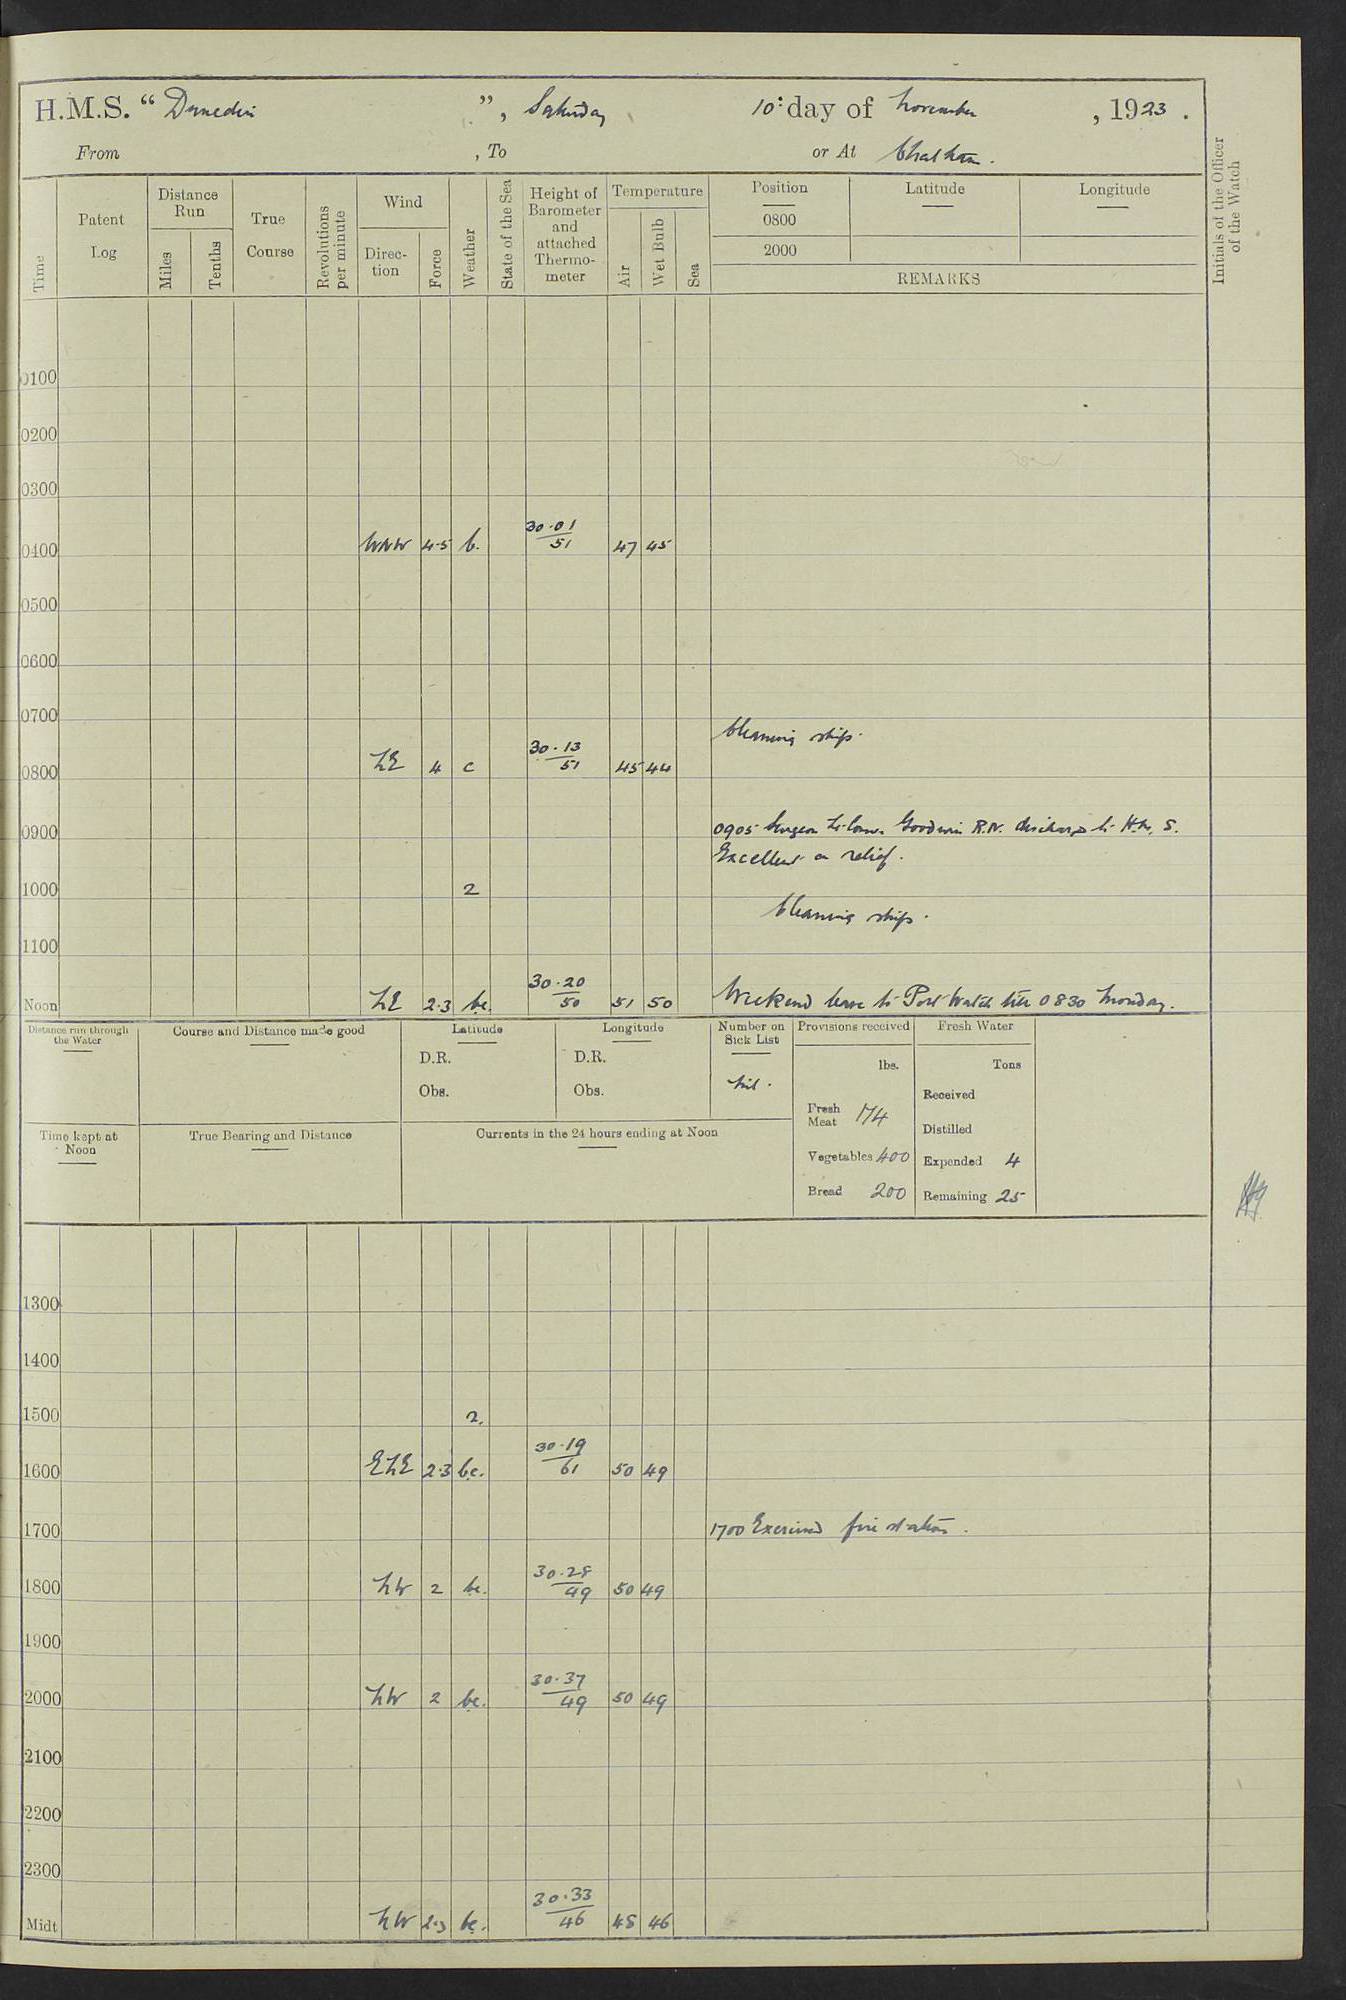 H.M.S. “ Dunedin ”, Saturday 10: day of November, 1923.
From , To or At Chatham.
Time
Patent Log
Distance Run
Miles
Tenths
True Course
Revolutions per minute
Wind
Direc-tion
Force
Weather
State of the Sea
Height of Barometer and attached Thermo-meter
Temperature
Air
Wet Bulb
Sea
Position Latitude Longitude
0800
2000
REMARKS
Initials of the Officer of the Watch
0100
0200
0300
0400 WNW 4·5 b. 30·01 51 47 45
0500
0600
0700
Cleaning ship.
0800 NE 4 c 30·13 51 45 44
0900 0905 Surgeon Lt. Comr. Goodwin R.N. discharged to H.M.S.
Excellent on relief.
1000 2
Cleaning ship.
1100
Noon NE 2·3 bc. 30·20 50 51 50 Weekend leave to Port Watch till 0830 Monday.
Distance run through the Water
Course and Distance made good
Latitude
D.R.
Obs.
Longitude
D.R.
Obs.
Number on Sick List
Nil.
Provisions received
lbs.
Fresh Meat 174
Vegetables 400
Bread 200
Fresh Water
Tons
Received
Distilled
Expended 4
Remaining 25
Time kept at Noon
True Bearing and Distance
Currents in the 24 hours ending at Noon
1300
1400
1500 2.
1600 ENE 2·3 bc. 30·19 61 50 49
1700 1700 Exercised fire stations.
1800 NW 2 bc. 30·28 49 50 49
1900
2000 NW 2 bc. 30·37 49 50 49
2100
2200
2300
Midt NW 2·3 bc. 30·33 46 48 46